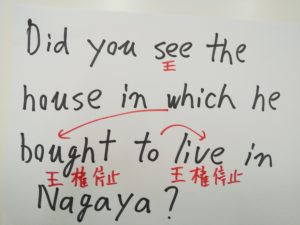 Did you see the
王
house in which he
bought to live in
王権停止 王権停止
Nagaya?